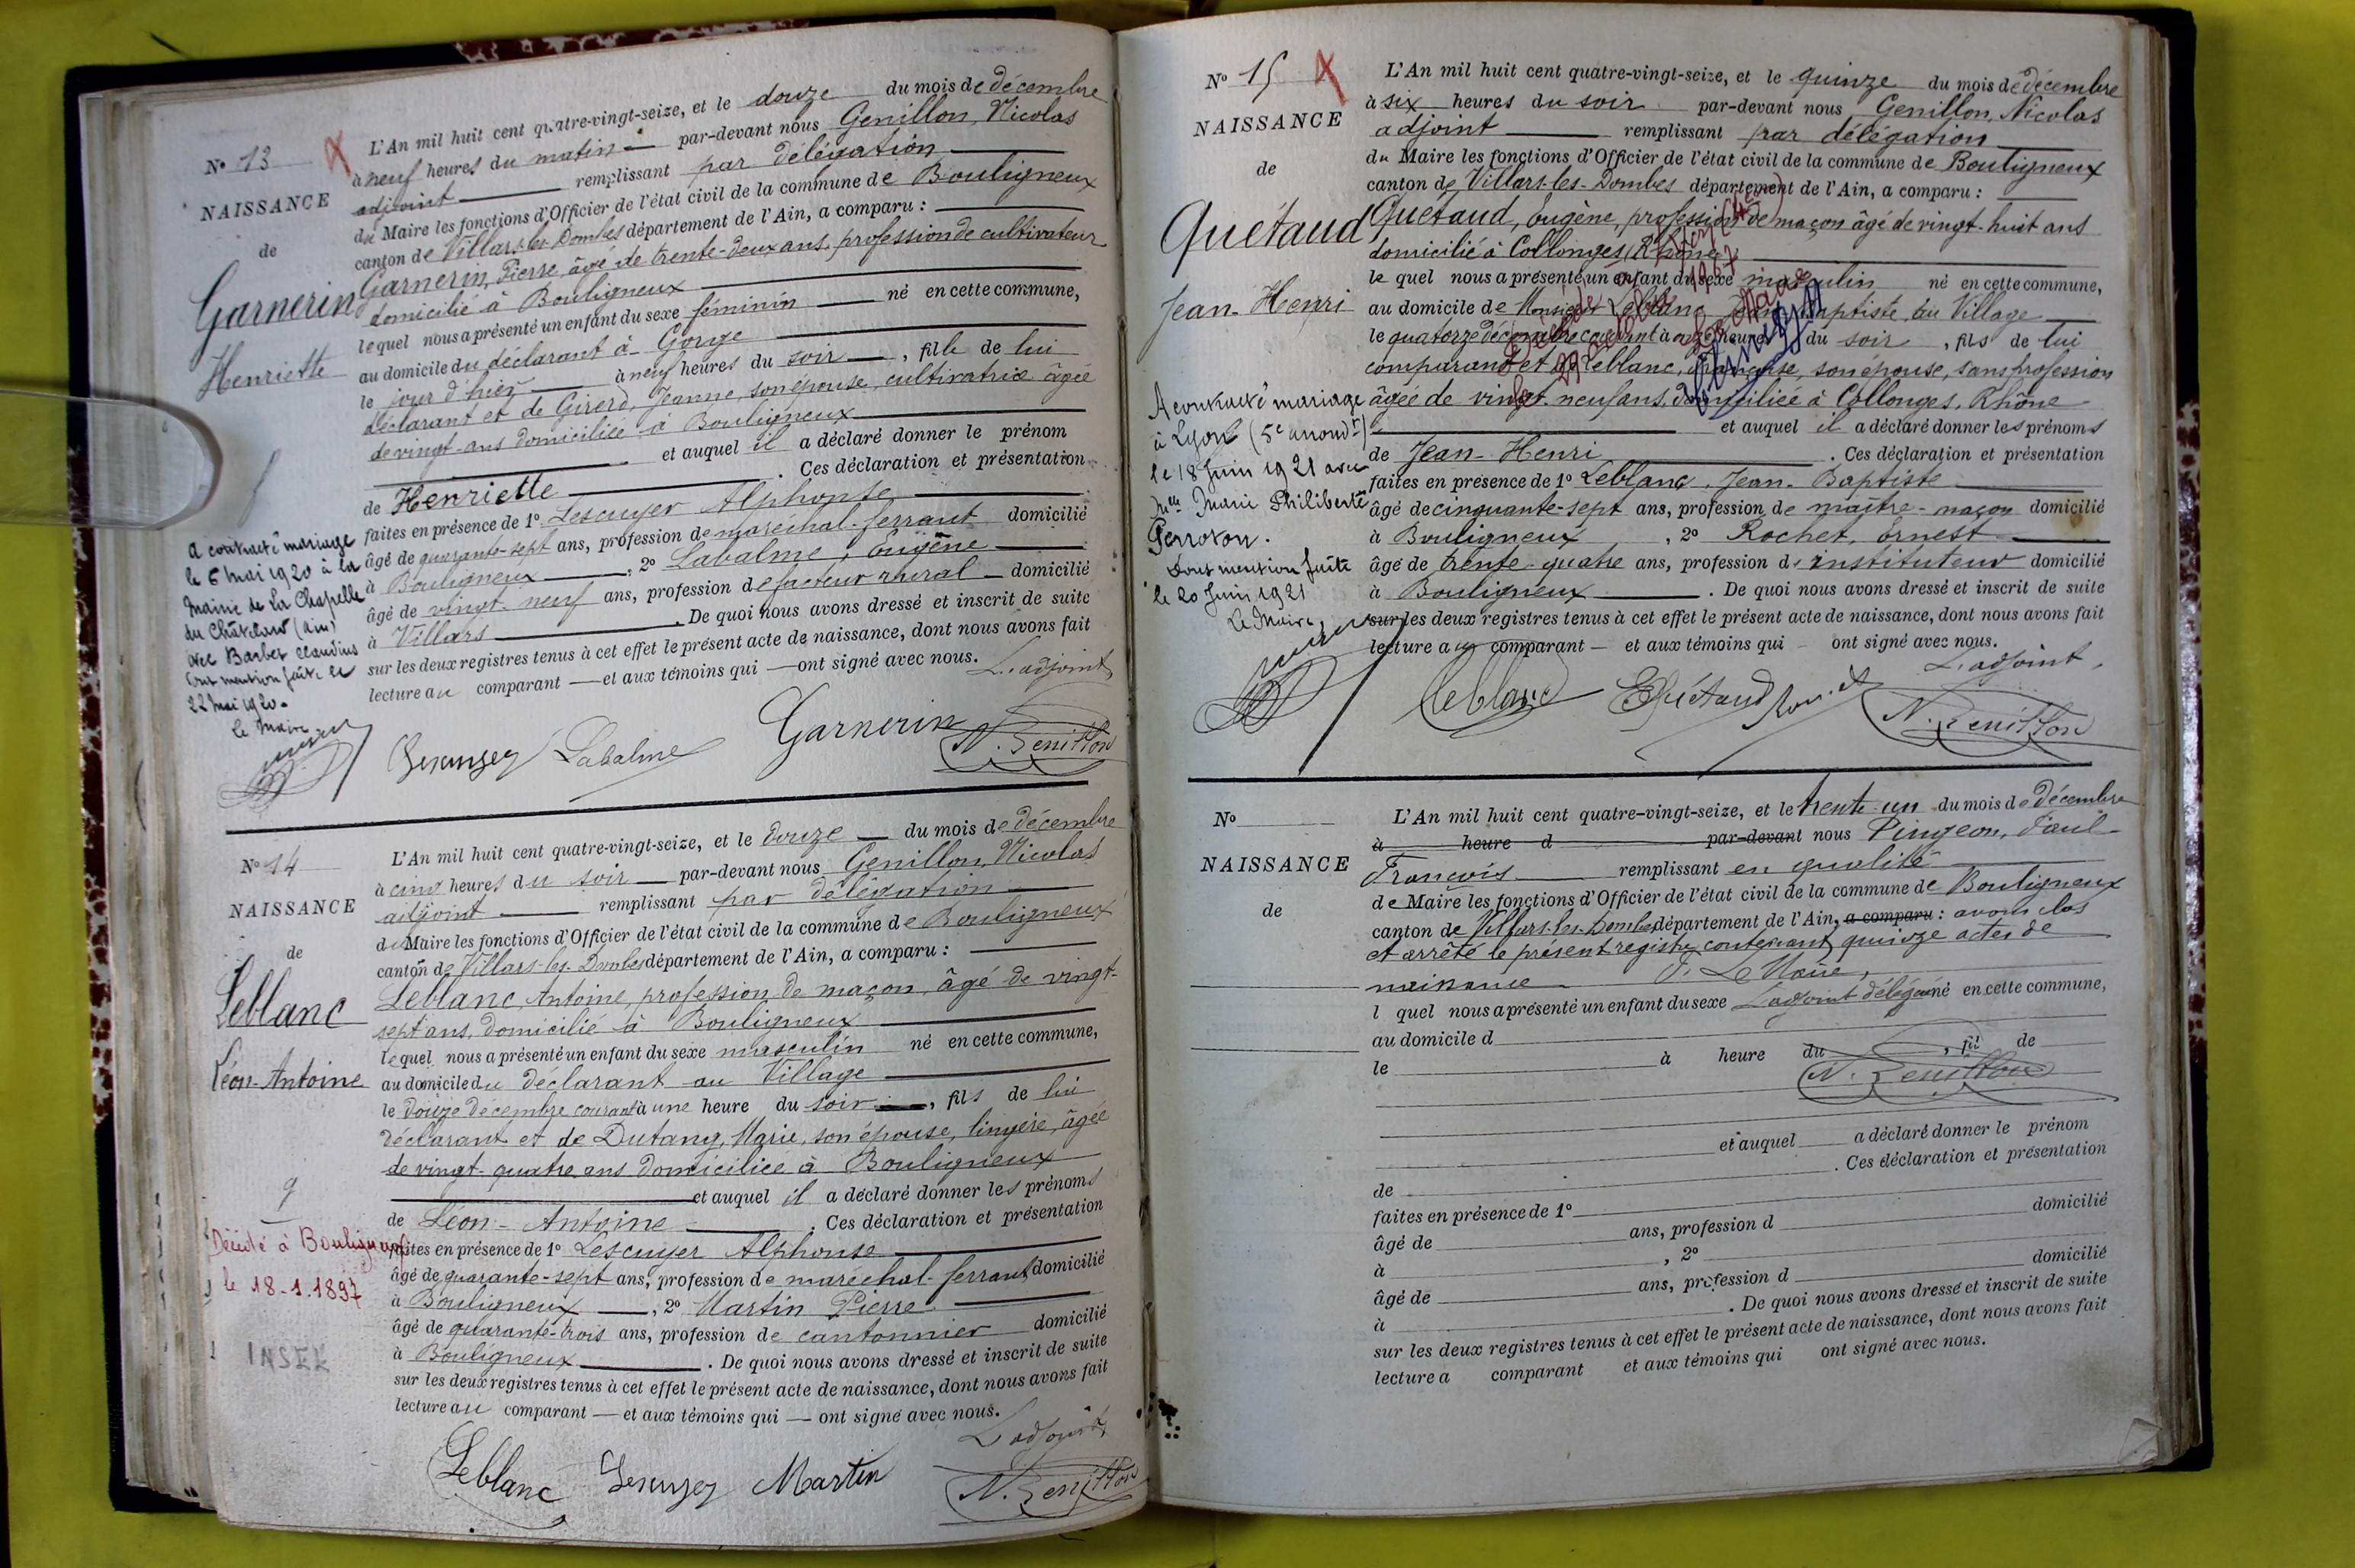 N° 13
NAISSANCE
de
Garnerin
Henriette
L'An mil huit cent quatre-vingt-seize, et le douze du mois de décembre
à neuf heures du matin par-devant nous Genillon, Nicolas
adjoint remplissant par délégation
du Maire les fonctions d'Officier de l'état civil de la commune de Bouligneux
canton de Villars-les-Dombes département de l'Ain, a comparu :
Garnerin, Pierre, âgé de trente-deux ans, profession de cultivateur
domicilié à Bouligneux
lequel nous a présenté un enfant du sexe féminin né en cette commune,
au domicile du déclarant à Gorge
le jour d'hier à neuf heures du soir, fille de lui
déclarant et de Girerd, Jeanne, son épouse, cultivatrice âgée
de vingt-ans domiciliée à Bouligneux
et auquel il a déclaré donner le prénom
de Henriette . Ces déclaration et présentation
faites en présence de 1° Lescuyer Alphonse
âgé de quarante-sept ans, profession de maréchal-ferrant domicilié
à Bouligneux , 2° Labalme, Eugène
âgé de vingt-neuf ans, profession de facteur rural domicilié
à Villars . De quoi nous avons dressé et inscrit de suite
sur les deux registres tenus à cet effet le présent acte de naissance, dont nous avons fait
lecture au comparant et aux témoins qui ont signé avec nous.
L'adjoint
A contracté mariage
le 6 mai 1920 à la
mairie de La Chapelle
du Châtelard (Ain)
avec Barbet Claudius
Dont mention faite le
22 mai 1920.
Le Maire
Lescuyer Labalme Garnerin N. Genillon
N° 14
NAISSANCE
de
Leblanc
Léon-Antoine
L'An mil huit cent quatre-vingt-seize, et le douze du mois de décembre
à cinq heures du soir par-devant nous Genillon, Nicolas
adjoint remplissant par délégation
du Maire les fonctions d'Officier de l'état civil de la commune de Bouligneux
canton de Villars-les-Dombes département de l'Ain, a comparu :
Leblanc, Antoine, profession de maçon, âgé de vingt-
sept ans, domicilié à Bouligneux
lequel nous a présenté un enfant du sexe masculin né en cette commune,
au domicile du déclarant au Village
le douze décembre courant à une heure du soir, fils de lui
déclarant et de Dutang, Marie, son épouse, lingère, âgée
de vingt-quatre ans domiciliée à Bouligneux
et auquel il a déclaré donner les prénoms
de Léon-Antoine . Ces déclaration et présentation
faites en présence de 1° Lescuyer Alphonse
âgé de quarante-sept ans, profession de maréchal-ferrant domicilié
à Bouligneux , 2° Martin Pierre
âgé de quarante-trois ans, profession de cantonnier domicilié
à Bouligneux . De quoi nous avons dressé et inscrit de suite
sur les deux registres tenus à cet effet le présent acte de naissance, dont nous avons fait
lecture au comparant et aux témoins qui ont signé avec nous.
L'adjoint
Décédé à Bouligneux
le 18-1-1897
INSEE
Leblanc Lescuyer Martin N. Genillon
N° 15
NAISSANCE
de
Quétaud
Jean-Henri
L'An mil huit cent quatre-vingt-seize, et le quinze du mois de décembre
à six heures du soir par-devant nous Genillon, Nicolas
adjoint remplissant par délégation
du Maire les fonctions d'Officier de l'état civil de la commune de Bouligneux
canton de Villars-les-Dombes département de l'Ain, a comparu :
Quétaud, Eugène, profession de maçon âgé de vingt-huit ans
domicilié à Collonges, Rhône
le quel nous a présenté un enfant du sexe masculin né en cette commune,
au domicile de Monsieur Leblanc Jean Baptiste au Village
le quatorze décembre courant à heures du soir, fils de lui
comparant et de Leblanc, Françoise, son épouse, sans profession
âgée de vingt-neuf ans, domiciliée à Collonges, Rhône
et auquel il a déclaré donner les prénoms
de Jean-Henri . Ces déclaration et présentation
faites en présence de 1° Leblanc, Jean-Baptiste
âgé de cinquante-sept ans, profession de maître-maçon domicilié
à Bouligneux , 2° Rochet, Ernest
âgé de trente-quatre ans, profession d'instituteur domicilié
à Bouligneux . De quoi nous avons dressé et inscrit de suite
sur les deux registres tenus à cet effet le présent acte de naissance, dont nous avons fait
lecture au comparant et aux témoins qui ont signé avec nous.
L'adjoint,
A contracté mariage
à Lyon (5e arrondt)
le 18 Juin 1921 avec
Melle Marie Philiberte
Perroton.
Dont mention faite
le 20 Juin 1921
Le Maire,
Leblanc EQuétaud Rochet N. Genillon
N°
NAISSANCE
de
L'An mil huit cent quatre-vingt-seize, et le trente-un du mois de décembre
à heure d par-devant nous Pingeon, Paul-
François remplissant en qualité
de Maire les fonctions d'Officier de l'état civil de la commune de Bouligneux
canton de Villars-les-Dombes département de l'Ain, a comparu : avons clos
et arrêté le présent registre contenant quinze actes de
naissance P. Le Maire,
l quel nous a présenté un enfant du sexe L'adjoint délégué né en cette commune,
au domicile d
le à heure du , fil de
N. Genillon
et auquel a déclaré donner le prénom
de . Ces déclaration et présentation
faites en présence de 1°
âgé de ans, profession d domicilié
à , 2°
âgé de ans, profession d domicilié
à . De quoi nous avons dressé et inscrit de suite
sur les deux registres tenus à cet effet le présent acte de naissance, dont nous avons fait
lecture a comparant et aux témoins qui ont signé avec nous.